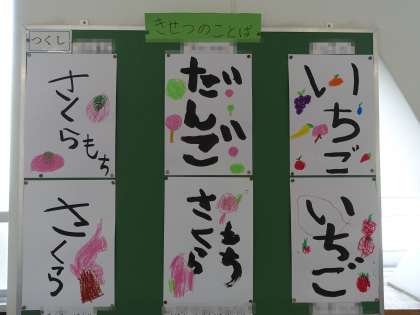 きせつのことば
つくし
さくら
もち
だんご
いちご
さくら
さくら
もち
いちご